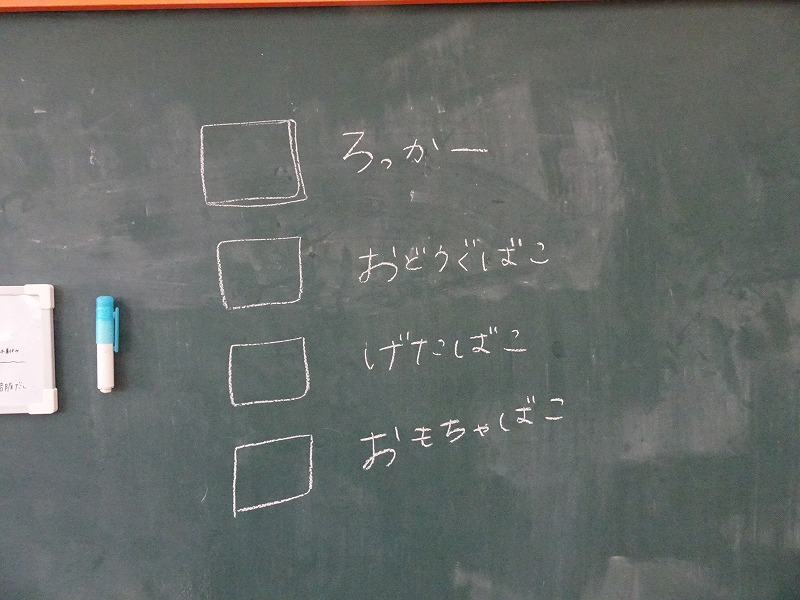 ろっかー
おどうぐばこ
げたばこ
おもちゃばこ